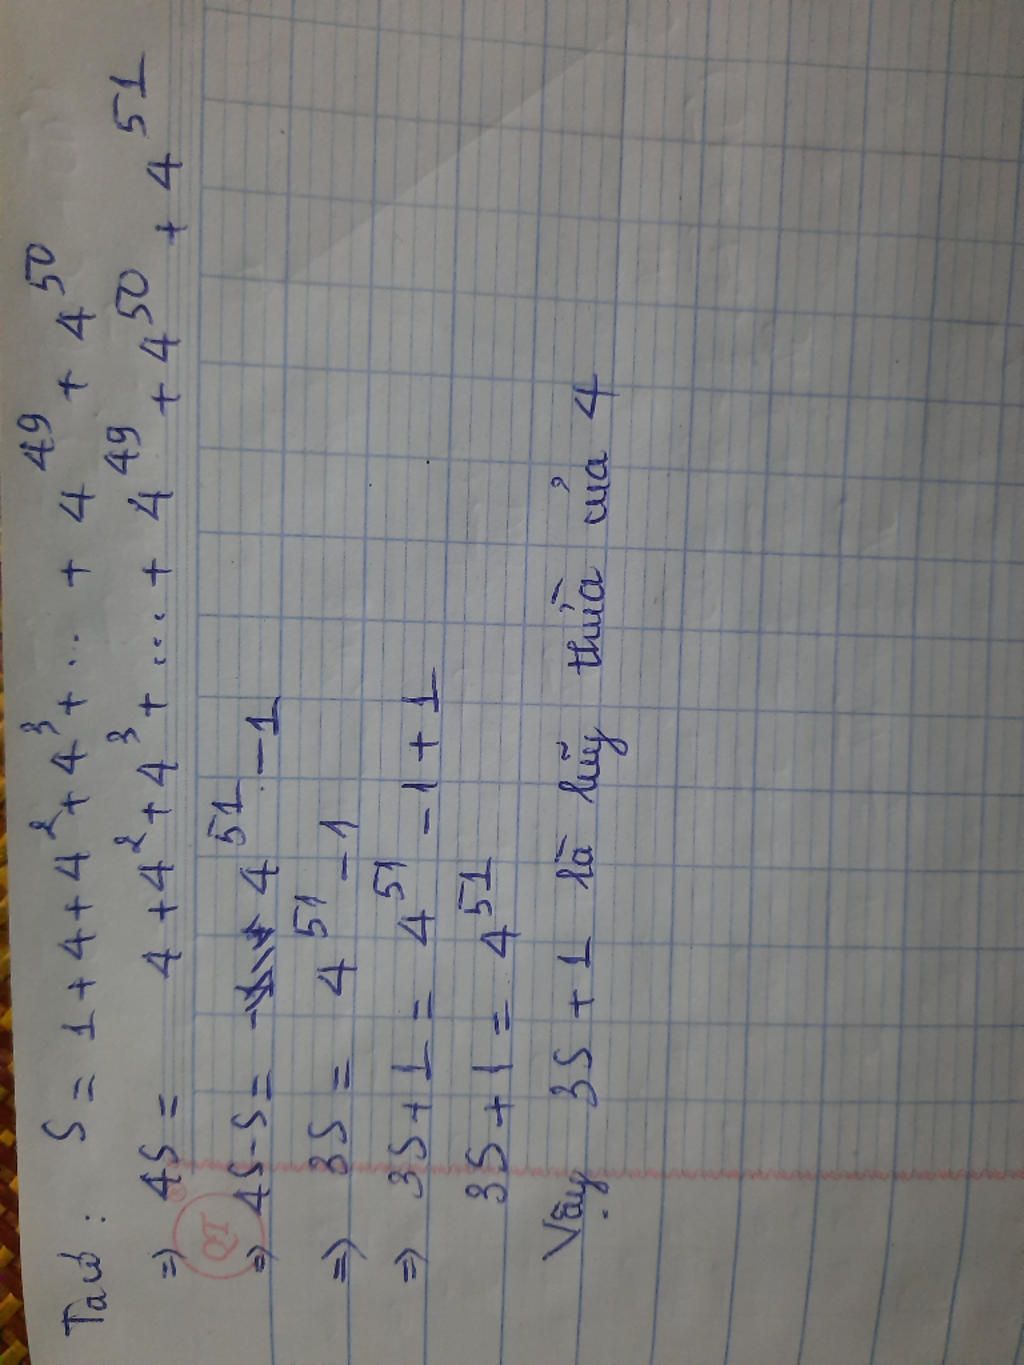 Ta có : S = 1 + 4 + 4² + 4³ + ... + 4⁴⁹ + 4⁵⁰
=) 4S = 4 + 4² + 4³ + ... + 4⁴⁹ + 4⁵⁰ + 4⁵¹
=) 4S - S = 4⁵¹ - 1
=) 3S = 4⁵¹ - 1
=) 3S + 1 = 4⁵¹ - 1 + 1
3S + 1 = 4⁵¹
Vậy 3S + 1 là lũy thừa của 4